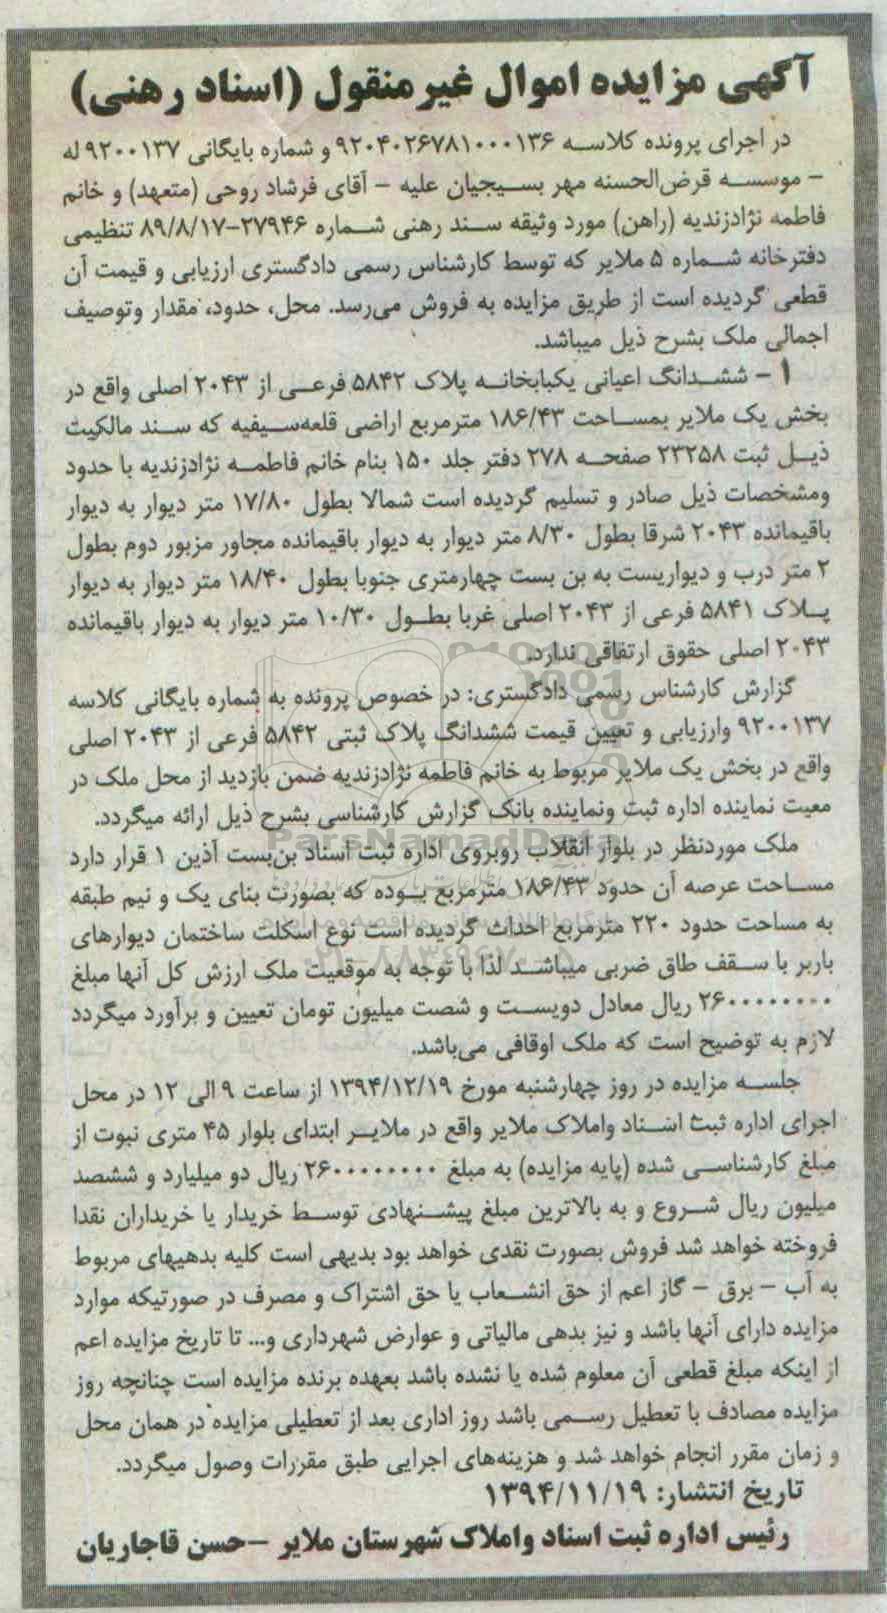 آگهی مزایده اموال غیر منقول (اسناد رهنی)
در اجرای پرونده کلاسه ۹۲۰۴۰۲۶۷۸۱۰۰۰۱۳۶ و شماره بایگانی ۹۲۰۰۱۳۷ له
- موسسه قرض‌الحسنه مهر بسیجیان علیه - آقای فرشاد روحی (متعهد) و خانم
فاطمه نژادزندیه (راهن) مورد وثیقه سند رهنی شماره ۲۷۹۴۶-۸۹/۸/۱۷ تنظیمی
دفترخانه شماره ۵ ملایر که توسط کارشناس رسمی دادگستری ارزیابی و قیمت آن
قطعی گردیده است از طریق مزایده به فروش می‌رسد. محل، حدود، مقدار وتوصیف
اجمالی ملک بشرح ذیل میباشد.
۱ - ششدانگ اعیانی یکبابخانه پلاک ۵۸۴۲ فرعی از ۲۰۴۳ اصلی واقع در
بخش یک ملایر بمساحت ۱۸۶/۴۳ مترمربع اراضی قلعه‌سیفیه که سند مالکیت
ذیل ثبت ۲۳۲۵۸ صفحه ۲۷۸ دفتر جلد ۱۵۰ بنام خانم فاطمه نژادزندیه با حدود
ومشخصات ذیل صادر و تسلیم گردیده است شمالا بطول ۱۷/۸۰ متر دیوار به دیوار
باقیمانده ۲۰۴۳ شرقا بطول ۸/۳۰ متر دیوار به دیوار باقیمانده مجاور مزبور دوم بطول
۲ متر درب و دیواریست به بن بست چهارمتری جنوبا بطول ۱۸/۴۰ متر دیوار به دیوار
پلاک ۵۸۴۱ فرعی از ۲۰۴۳ اصلی غربا بطول ۱۰/۳۰ متر دیوار به دیوار باقیمانده
۲۰۴۳ اصلی حقوق ارتفاقی ندارد.
گزارش کارشناس رسمی دادگستری: در خصوص پرونده به شماره بایگانی کلاسه
۹۲۰۰۱۳۷ وارزیابی و تعیین قیمت ششدانگ پلاک ثبتی ۵۸۴۲ فرعی از ۲۰۴۳ اصلی
واقع در بخش یک ملایر مربوط به خانم فاطمه نژادزندیه ضمن بازدید از محل ملک در
معیت نماینده اداره ثبت ونماینده بانک گزارش کارشناسی بشرح ذیل ارائه میگردد.
ParsNamadData
ملک موردنظر در بلوار انقلاب روبروی اداره ثبت اسناد بن‌بست آذین ۱ قرار دارد
مساحت عرصه آن حدود ۱۸۶/۴۳ مترمربع بوده که بصورت بنای یک و نیم طبقه
به مساحت حدود ۲۲۰ مترمربع احداث گردیده است نوع اسکلت ساختمان دیوارهای
باربر با سقف طاق ضربی میباشد لذا با توجه به موقعیت ملک ارزش کل آنها مبلغ
۲۶۰۰۰۰۰۰۰۰ ریال معادل دویست و شصت میلیون تومان تعیین و برآورد میگردد
لازم به توضیح است که ملک اوقافی می‌باشد.
جلسه مزایده در روز چهارشنبه مورخ ۱۳۹۴/۱۲/۱۹ از ساعت ۹ الی ۱۲ در محل
اجرای اداره ثبت اسناد واملاک ملایر واقع در ملایر ابتدای بلوار ۴۵ متری نبوت از
مبلغ کارشناسی شده (پایه مزایده) به مبلغ ۲۶۰۰۰۰۰۰۰۰ ریال دو میلیارد و ششصد
میلیون ریال شروع و به بالاترین مبلغ پیشنهادی توسط خریدار یا خریداران نقدا
فروخته خواهد شد فروش بصورت نقدی خواهد بود بدیهی است کلیه بدهیهای مربوط
به آب - برق - گاز اعم از حق انشعاب یا حق اشتراک و مصرف در صورتیکه موارد
مزایده دارای آنها باشد و نیز بدهی مالیاتی و عوارض شهرداری و... تا تاریخ مزایده اعم
از اینکه مبلغ قطعی آن معلوم شده یا نشده باشد بعهده برنده مزایده است چنانچه روز
مزایده مصادف با تعطیل رسمی باشد روز اداری بعد از تعطیلی مزایده در همان محل
و زمان مقرر انجام خواهد شد و هزینه‌های اجرایی طبق مقررات وصول میگردد.
تاریخ انتشار: ۱۳۹۴/۱۱/۱۹
رئیس اداره ثبت اسناد واملاک شهرستان ملایر -حسن قاجاریان